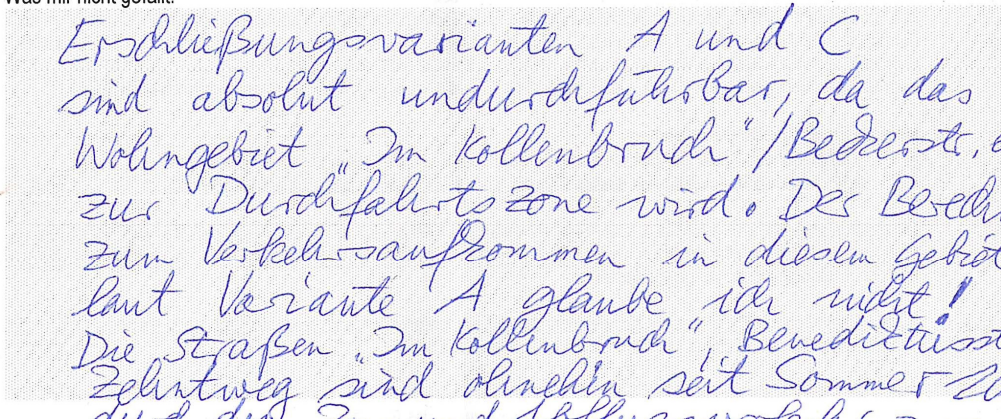 Was mir nicht gefällt:
Erschließungsvarianten A und C
sind absolut undurchführbar, da das
Wohngebiet "Im Kollenbruch"/Beckerstr.
zur "Durchfahrtszone wird. Der Berech
zum Verkehrsaufkommen in diesem Gebiet
laut Variante A glaube ich nicht!
Die Straßen "Im Kollenbruch", Benediktusst
Zehntweg sind ohnehin seit Sommer 20
durch den